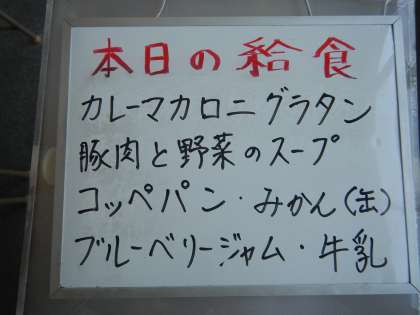 本日の給食
カレーマカロニグラタン
豚肉と野菜のスープ
コッペパン・みかん(缶)
ブルーベリージャム・牛乳